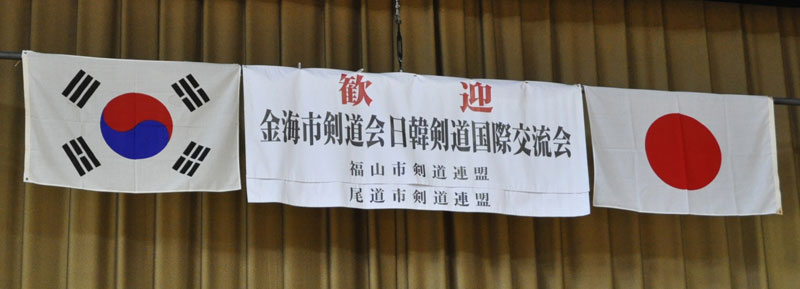 歓 迎
金海市剣道会日韓剣道国際交流会
福山市剣道連盟
尾道市剣道連盟